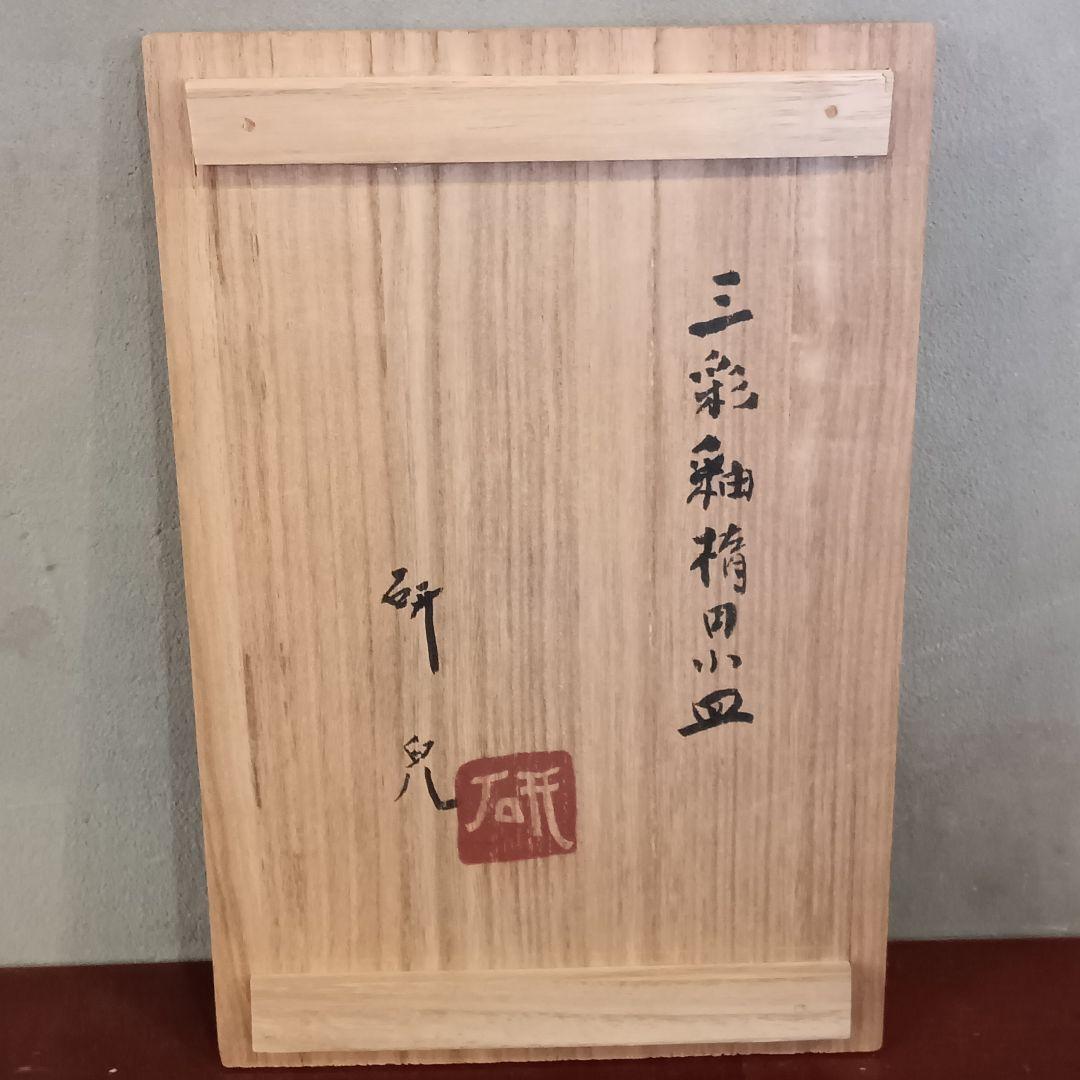 三彩釉楕円小皿
研兒
研